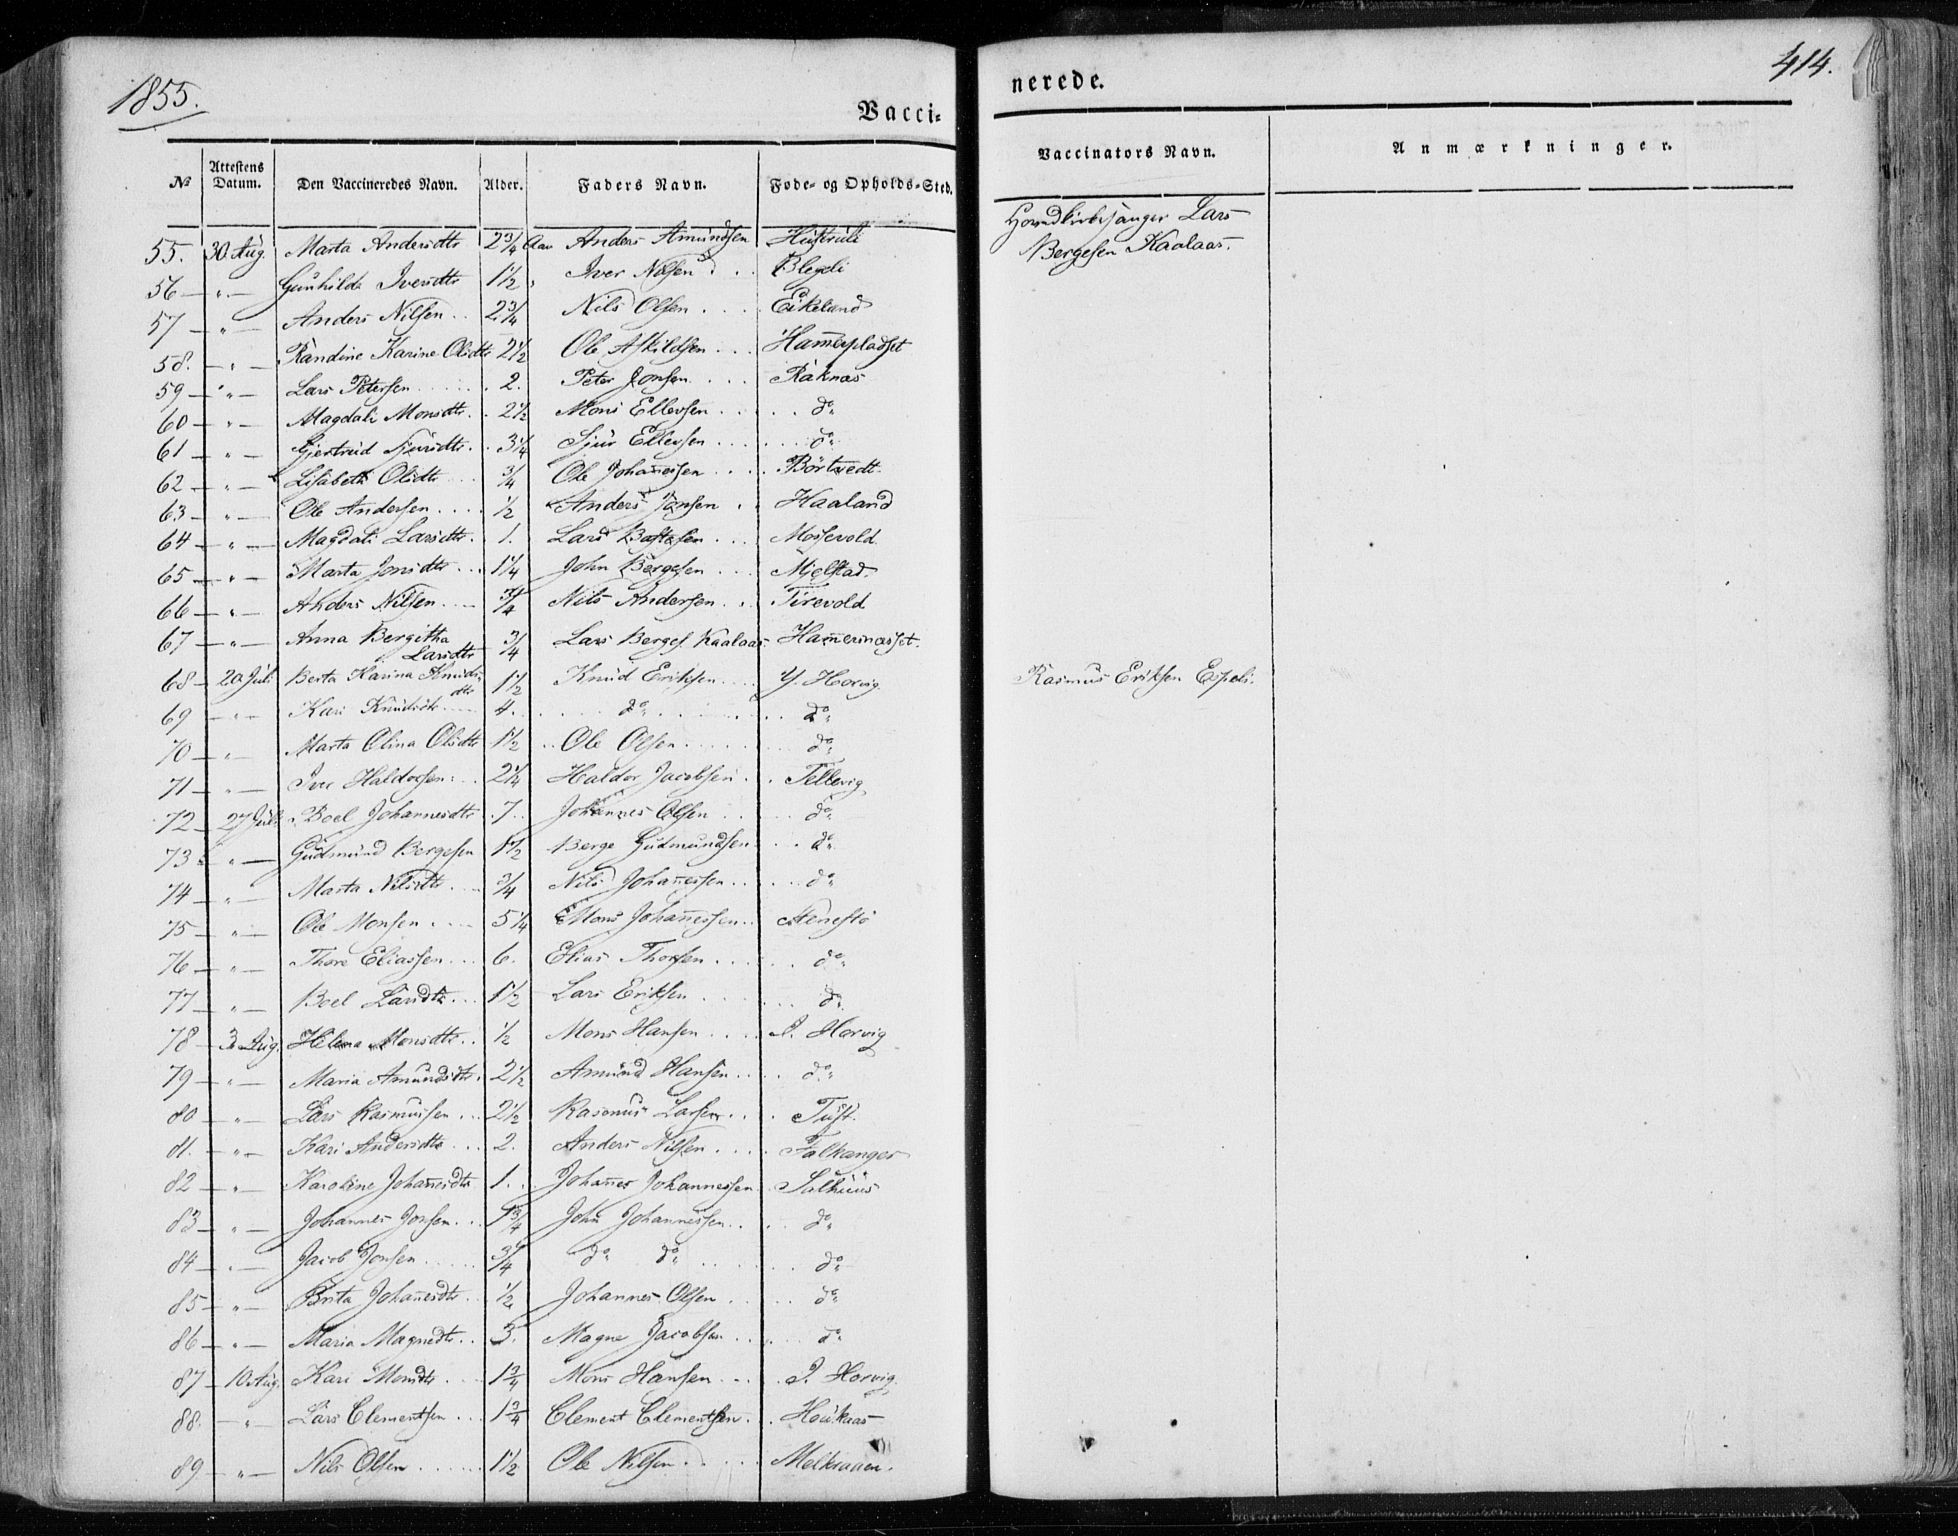 1855.
414.
Vacci-
nerede.
№ Attestens Datum. Den Vaccineredes Navn. Alder. Faders Navn. Føde- og Opholds-Sted. Vaccinators Navn. Anmærkninger.
55. 30 Aug. Marta Andersdtr 2 3/4 Aar Anders Amundsen Hovedkirkesanger Lars
Bergesen Kaalaas.
56 — „ — Gunhilde Iversdtr 1 1/2 „ Iver Nilsen . . Blegeli
57 — „ — Anders Nilsen . . 2 3/4 Nils Olsen . . . . Eikeland
58. — „ — Randine Karine Olsdtr 2 1/2 Ole Askildsen . . . Hamerspladset
59 — „ — Lars Petersen . . . . 2. Peter Jonsen . . . . Raknæs
60 — „ — Magdali Monsdtr . . 2 1/2 Mons Ellevsen . . . . . do
61 — „ — Gjertrud Sjursdtr . . 3 1/4 Sjur Ellevsen . . . . . do
62 — „ — Lisabeth Olsdtr . . 3/4 Ole Johannessen . . . . Börtvedt.
63 — „ — Ole Andersen . . . . 1/2 Anders Jonsen . . Haaland
64 — „ — Magdali Larsdtr . . 1. Lars Bastesen . . . Mossevold.
65 — „ — Marta Jonsdtr . . . 1 1/4 John Bergesen . . . Mjelstad.
66 — „ — Anders Nilsen . . . 3/4 Nils Andersen . . Tirevold
67 — „ — Anna Bergitha Larsdtr 3/4 Lars Berges. Kaalaas. Hamernæsset.
68 — 20 Juli Berta Karina Knudsdtr 1 1/2 Knud Eriksen . . . . Y. Horvig. Rasmus Eriksen Espeli.
69 — „ — Kari Knudsdtr . . . 4. . . . . do . . . . . . do
70 — „ — Marta Olina Olsdtr 1 1/2 . . Ole Olsen . . . . . . do
71 — „ — Iver Haldorsen . . . 2 1/4 Haldor Jacobsen . . Tellevig
72 — 27 Juli Boel Johannesdtr . 7. . Johannes Olsen . . . . do
73 — „ — Gudmund Bergesen 1 1/2 Berge Gudmundsen . . . do
74 — „ — Marta Nilsdtr . . . 3/4 Nils Johannessen . . . . . do
75 — „ — Ole Monsen . . . . 5 1/4 Mons Johannessen . . Stenestö
76 — „ — Thore Eliassen . . . 6. Elias Thorsen . . . . . do
77 — „ — Boel Larsdtr . . . 1 1/2 Lars Eriksen . . . . . do
78 — 3 Aug. Helena Monsdtr . . 1/2 Mons Hansen . . . . I. Horvig
79 — „ — Maria Amundsdtr . 2 1/2 Amund Hansen . . . . do
80 — „ — Lars Rasmussen . . . 2 1/2 Rasmus Larsen . . . . Tuft.
81. — „ — Kari Andersdtr . . . 2. Anders Nilsen . . . . Falkanger
82 — „ — Karoline Johannesdtr 1. . . Johannes Johannessen Salhuus
83 — „ — Johannes Jonsen . . . 1 3/4 John Johannessen . . . . do
84 — „ — Jacob Jonsen . . . . 3/4 do do . . . . . . do
85 — „ — Brita Johannesdtr . . 1/2 Johannes Olsen . . . . . do
86 — „ — Maria Magnedtr . . 3. Magne Jacobsen . . . . . do
87 — 10 Aug. Kari Monsdtr . . . 1 3/4 Mons Hansen . . . . I. Horvig.
88. — „ Lars Clementsen . . . 1 3/4 Clement Clementsen . . Houkaas
89 — „ — Nils Olsen . . . . . 1 1/2 Ole Nilsen . . . . Melkraaen.